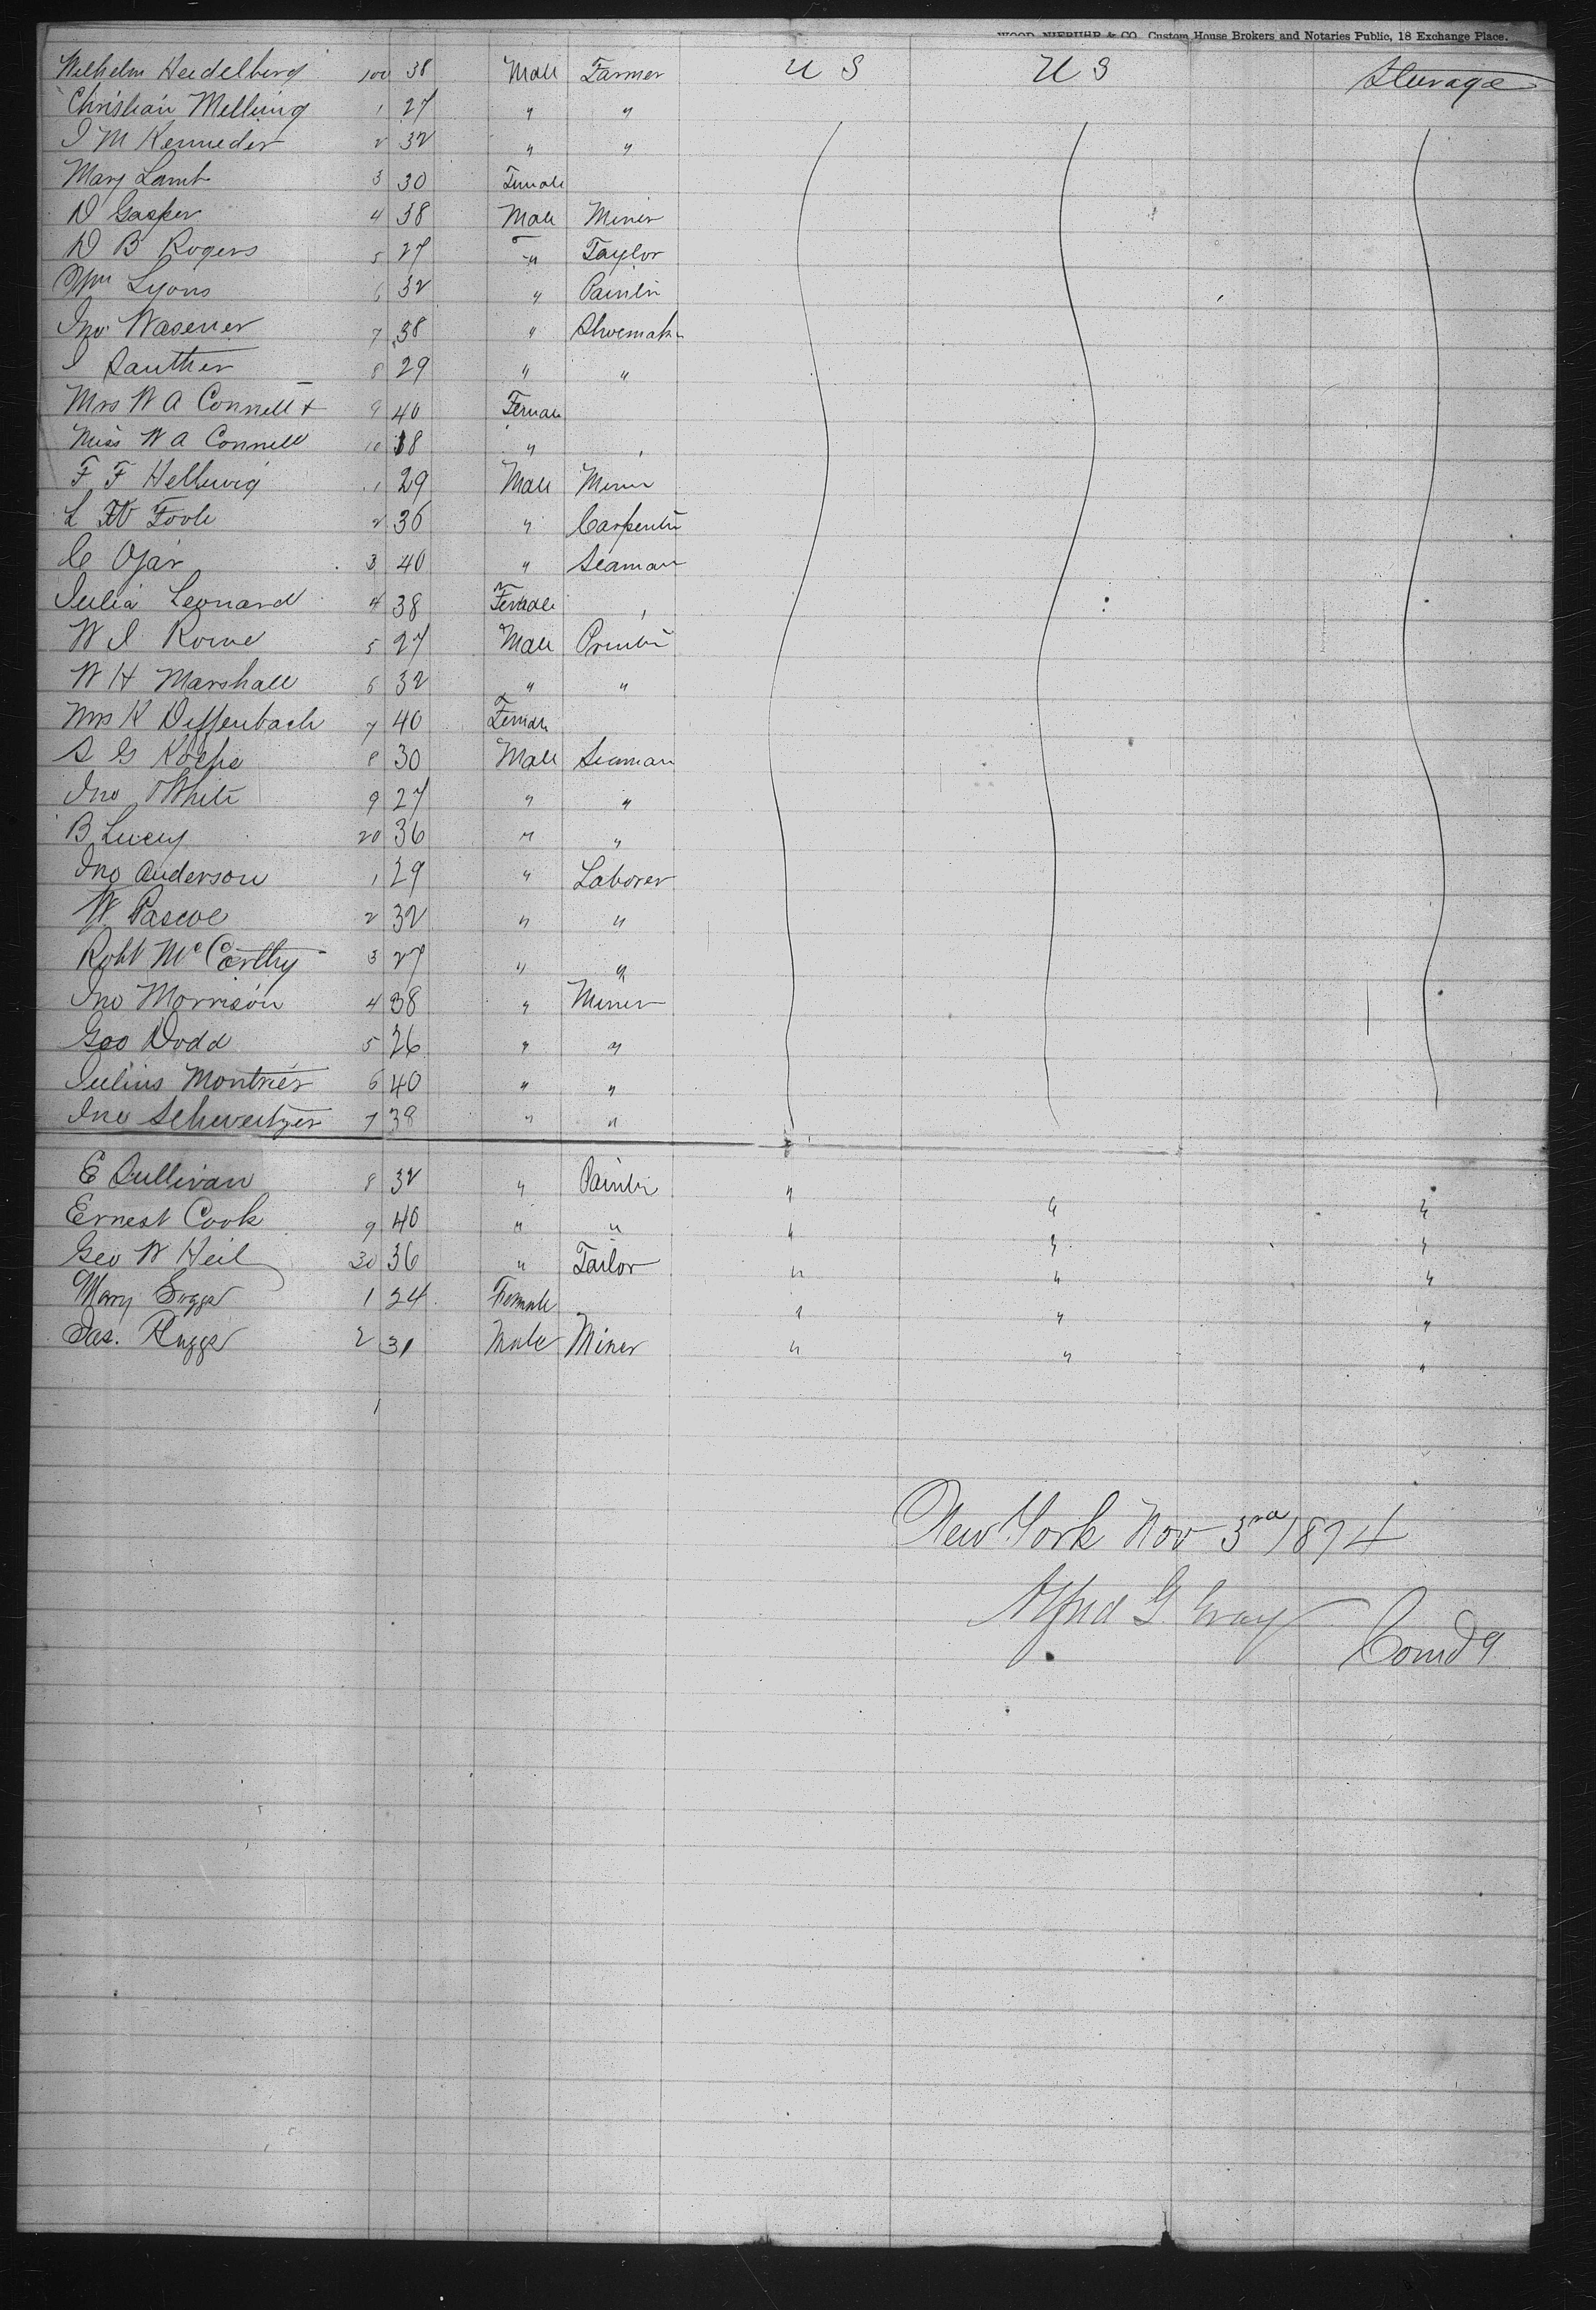 WOOD, NIEBUHR & CO. Custom House Brokers and Notaries Public, 18 Exchange Place.
Wilhelm Heidelberg 100 38 Male Farmer U S U S Steerage
Christian Melling 1 27 " "
I M Kenneder 2 32 " "
Mary Lamb 3 30 Female
D Gasper 4 38 Male Miner
D B Rogers 5 27 " Taylor
Wm Lyons 6 32 " Painter
Jno Wasener 7 38 " Shoemaker
I Sauther 8 29 " "
Mrs W A Connell + 9 40 Female
Miss W A Connell 10 18 "
F F Hellwig 1 29 Male Miner
L Foole 2 36 " Carpenter
C 3 40 " Seaman
Julia Leonard 4 38 Female
W I Rowe 5 27 Male Printer
W H Marshall 6 32 " "
Mrs K Deffenbach 7 40 Female
S G 8 30 Male Seaman
Jno White 9 27 " "
B Lucey 20 36 " "
Jno Anderson 1 29 " Laborer
W Pascoe 2 32 " "
Robt McCarthy 3 27 " "
Jno Morrison 4 38 " Miner
Geo Dodd 5 26 " "
Julius Montrier 6 40 " "
Jno Schweitzer 7 38 " "
E Sullivan 8 32 " Painter " " "
Ernest Cook 9 40 " " " " "
Geo W Heil 30 36 " Tailor " " "
Mary 1 24 Female " " "
Jas. Ruggs 2 31 Male Miner " " "
New York Nov 3rd 1874
Alfred G. Gray Comdg